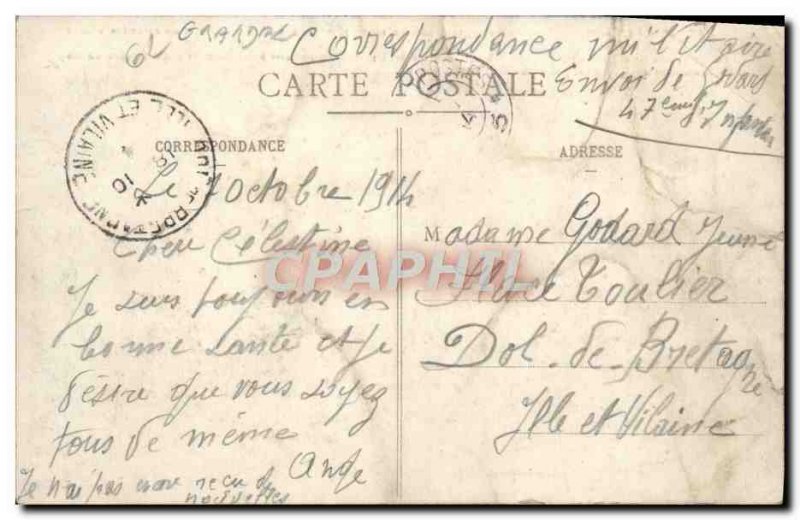 62 GRARD
Correspondance militaire
CARTE POSTALE
Envoi de Godard
47eme d'Infanterie
ILLE ET VILAINE
CORRESPONDANCE
ADRESSE
Le 1 octobre 1914
Madame Godard Jeune
Chere Célestine
CPAPHIL
Place Toulier
Je suis toujours en
bonne santé et je
Dol-de-Bretagne
désire que vous soyez
Ille et Vilaine
tous de même
Ange
Je n'ai pas encore recu de
nouvelles